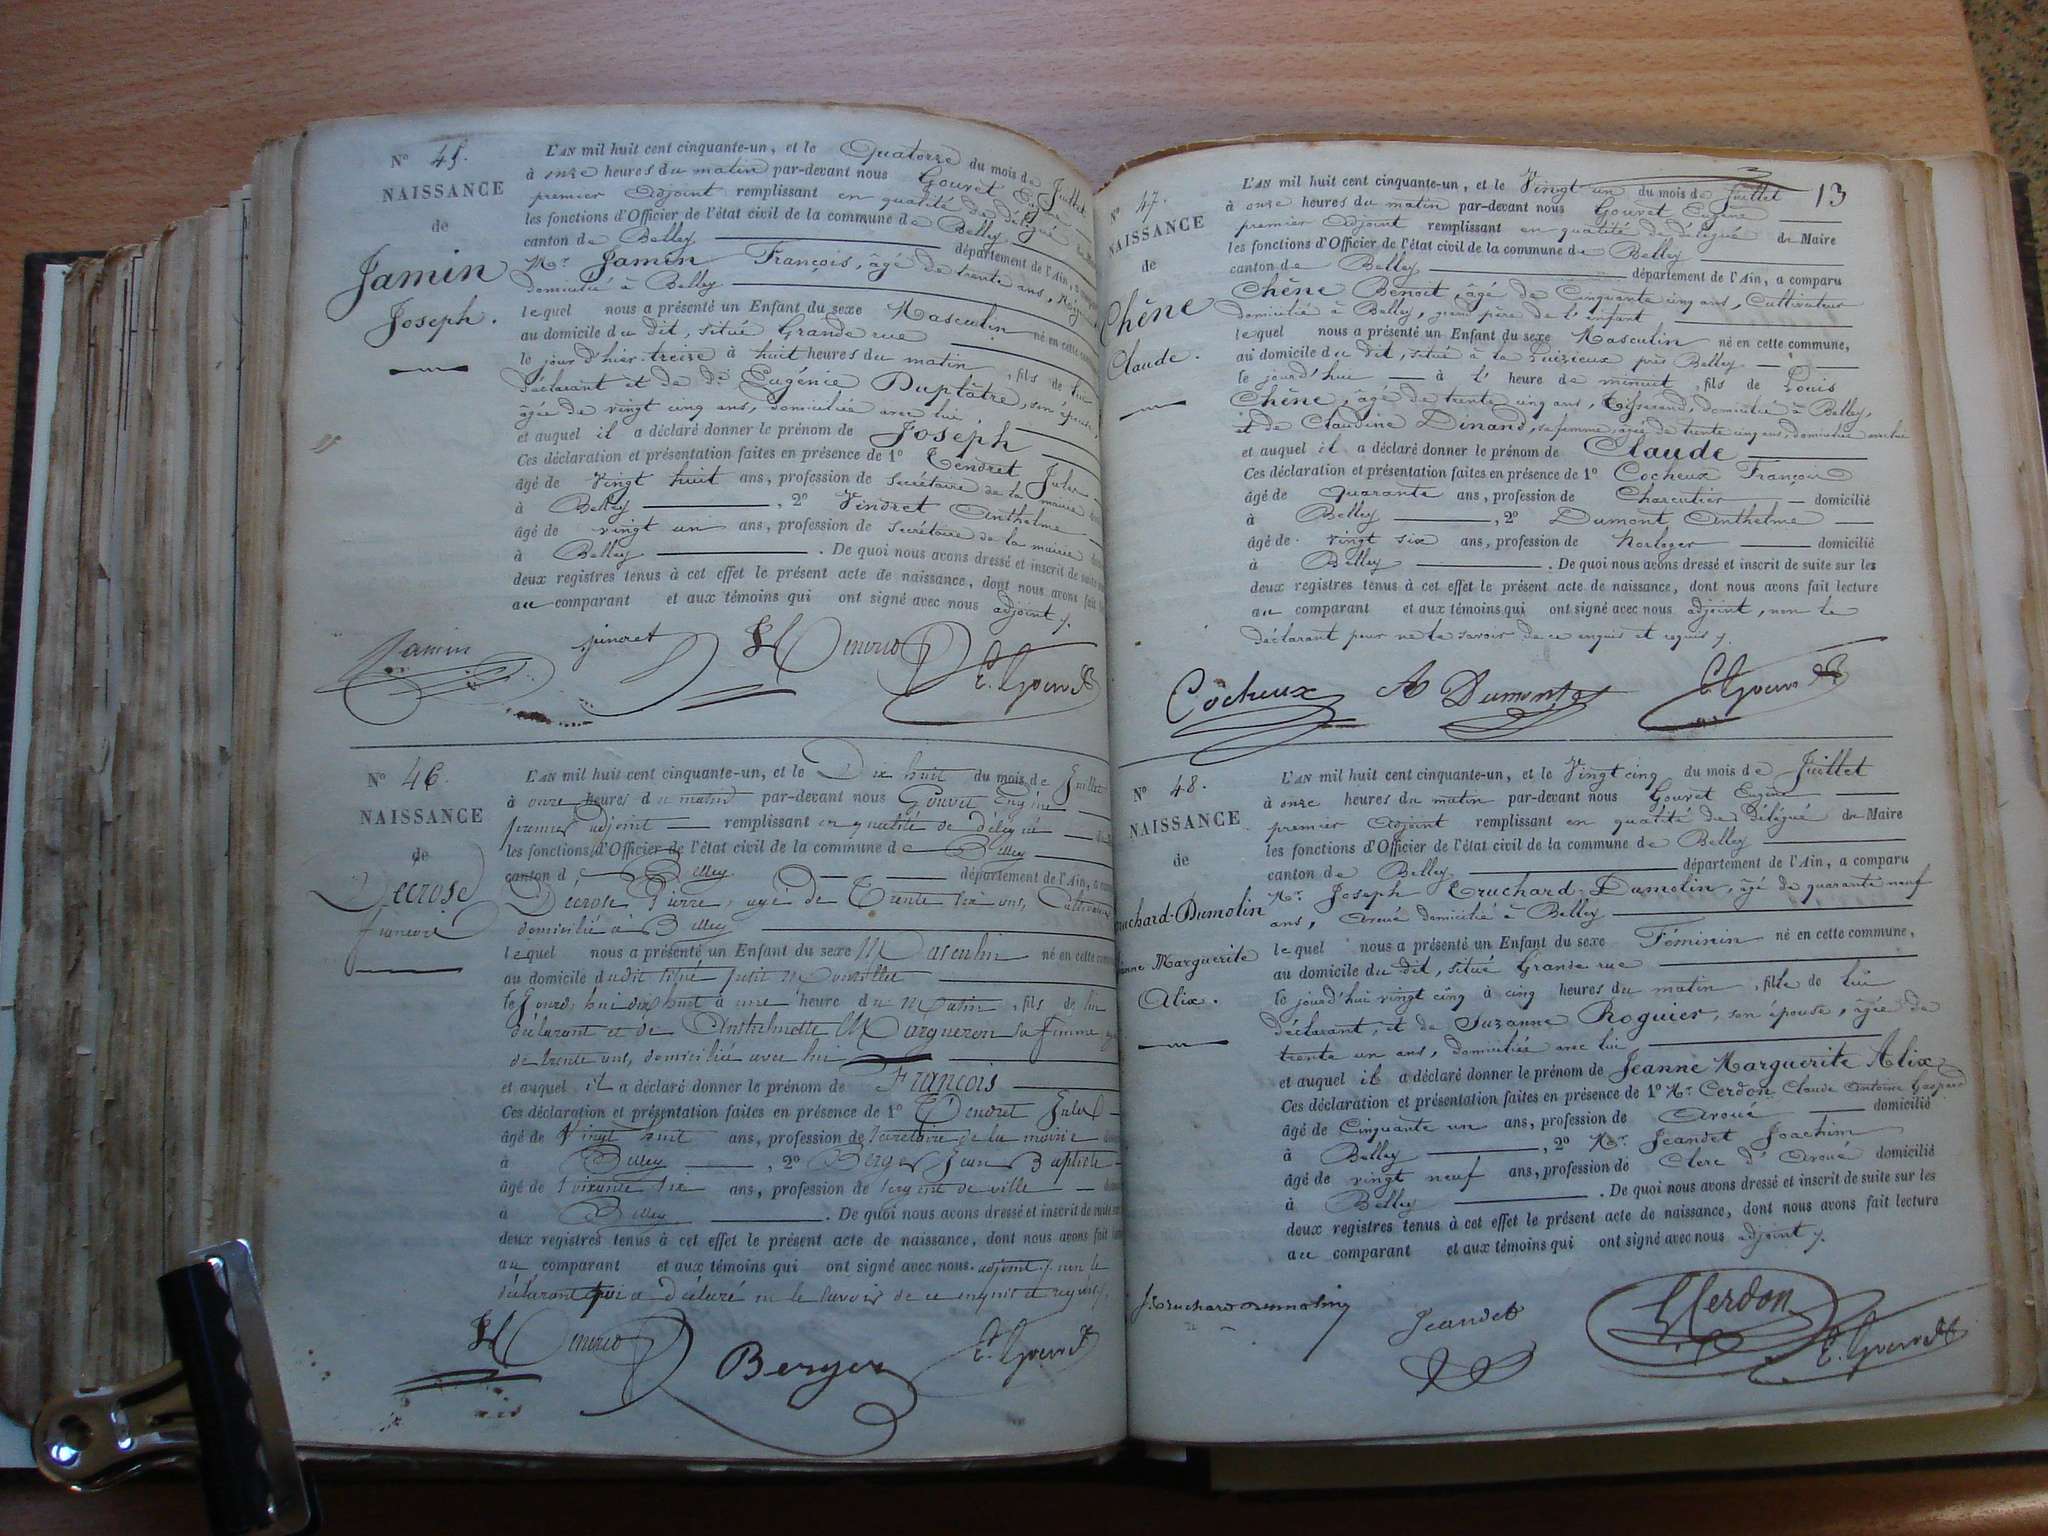 N° 45.
NAISSANCE
de
Jamin
Joseph.
L'AN mil huit cent cinquante-un, et le Quatorze du mois de Juillet
à onze heures du matin par-devant nous Gouvet Eugène
premier Adjoint remplissant en qualité de délégué
les fonctions d'Officier de l'état civil de la commune de Belley
canton de Belley département de l'Ain, a comparu
Mr Jamin François, âgé de trente ans,
domicilié à Belley
lequel nous a présenté un Enfant du sexe Masculin né en cette
au domicile du dit, situé Grande rue
le jour d'hier treize à huit heures du matin, fils de lui
déclarant et de de Eugénie Duplâtre, son épouse,
âgée de vingt cinq ans, domiciliée avec lui,
et auquel il a déclaré donner le prénom de Joseph
Ces déclaration et présentation faites en présence de 1° Tendret Jules
âgé de vingt huit ans, profession de secrétaire de la mairie
à Belley, 2° Vindret Anthelme
âgé de vingt un ans, profession de secrétaire de la mairie
à Belley. De quoi nous avons dressé et inscrit de suite sur
deux registres tenus à cet effet le présent acte de naissance, dont nous avons fait
au comparant et aux témoins qui ont signé avec nous adjoint.
Jamin E. Gouvet
N° 46.
NAISSANCE
de
Decrose
François
L'AN mil huit cent cinquante-un, et le Dix huit du mois de Juillet
à onze heures du matin par-devant nous Gouvet Eugène
premier adjoint remplissant en qualité de délégué
les fonctions d'Officier de l'état civil de la commune de Belley
canton d Belley département de l'Ain, a
Décrose Pierre, agé de Trente six ans, Cultivateur
domicilié à Belley
lequel nous a présenté un Enfant du sexe Masculin né en cette commune
au domicile dudit situé petit
le Jourd'hui dix huit à une heure du Matin, fils de lui
déclarant et de Anthelmette Margueron sa femme
de trente ans, domiciliée avec lui
et auquel il a déclaré donner le prénom de François
Ces déclaration et présentation faites en présence de 1° Tendret Jules
âgé de Vingt huit ans, profession de secrétaire de la mairie
à Belley, 2° Berger Jean Baptiste
âgé de soixante six ans, profession de sergent de ville
à Belley. De quoi nous avons dressé et inscrit de suite sur
deux registres tenus à cet effet le présent acte de naissance, dont nous avons fait
au comparant et aux témoins qui ont signé avec nous adjoint, non le
déclarant qui a déclaré ne le savoir de ce enquis et requis.
Berger E. Gouvet
13
N° 47.
NAISSANCE
de
Chêne
Claude.
L'AN mil huit cent cinquante-un, et le Vingt un du mois de Juillet
à onze heures du matin par-devant nous Gouvet Eugène
premier Adjoint remplissant en qualité de délégué du Maire
les fonctions d'Officier de l'état civil de la commune de Belley
canton de Belley département de l'Ain, a comparu
Chêne Benoit, âgé de Cinquante cinq ans, Cultivateur
domicilié à Belley, grand père de l'enfant
lequel nous a présenté un Enfant du sexe Masculin né en cette commune,
au domicile du dit, situé à la près Belley
le jourd'hui à l' heure de minuit, fils de Louis
Chêne, âgé de trente cinq ans, Tisserand, domicilié à Belley,
et de Claudine Dinand, sa femme, agée de trente cinq ans, domiciliée avec lui
et auquel il a déclaré donner le prénom de Claude
Ces déclaration et présentation faites en présence de 1° Cocheux François
âgé de Quarante ans, profession de Charcutier domicilié
à Belley, 2° Dumont Anthelme
âgé de vingt six ans, profession de horloger domicilié
à Belley. De quoi nous avons dressé et inscrit de suite sur les
deux registres tenus à cet effet le présent acte de naissance, dont nous avons fait lecture
au comparant et aux témoins qui ont signé avec nous adjoint, non le
déclarant pour ne le savoir de ce enquis et requis.
Cocheux A Dumont E. Gouvet
N° 48.
NAISSANCE
de
Truchard-Dumolin
Jeanne Marguerite
Alix.
L'AN mil huit cent cinquante-un, et le Vingt cinq du mois de Juillet
à onze heures du matin par-devant nous Gouvet Eugène
premier Adjoint remplissant en qualité de délégué du Maire
les fonctions d'Officier de l'état civil de la commune de Belley
canton de Belley département de l'Ain, a comparu
Mr Joseph Truchard-Dumolin, âgé de quarante neuf
ans, Avoué domicilié à Belley
lequel nous a présenté un Enfant du sexe Féminin né en cette commune,
au domicile du dit, situé Grande rue
le jourd'hui vingt cinq à cinq heures du matin, fille de lui
déclarant, et de Suzanne Roguier, son épouse, âgée de
trente un ans, domiciliée avec lui,
et auquel il a déclaré donner le prénom de Jeanne Marguerite Alix
Ces déclaration et présentation faites en présence de 1° Mr Cerdon, Claude Antoine Gaspard
âgé de Cinquante un ans, profession de Avoué domicilié
à Belley, 2° Mr Jeandet Joachim
âgé de vingt neuf ans, profession de Clerc d'Avoué domicilié
à Belley. De quoi nous avons dressé et inscrit de suite sur les
deux registres tenus à cet effet le présent acte de naissance, dont nous avons fait lecture
au comparant et aux témoins qui ont signé avec nous adjoint.
J. Truchard Dumolin Jeandet Cerdon E. Gouvet